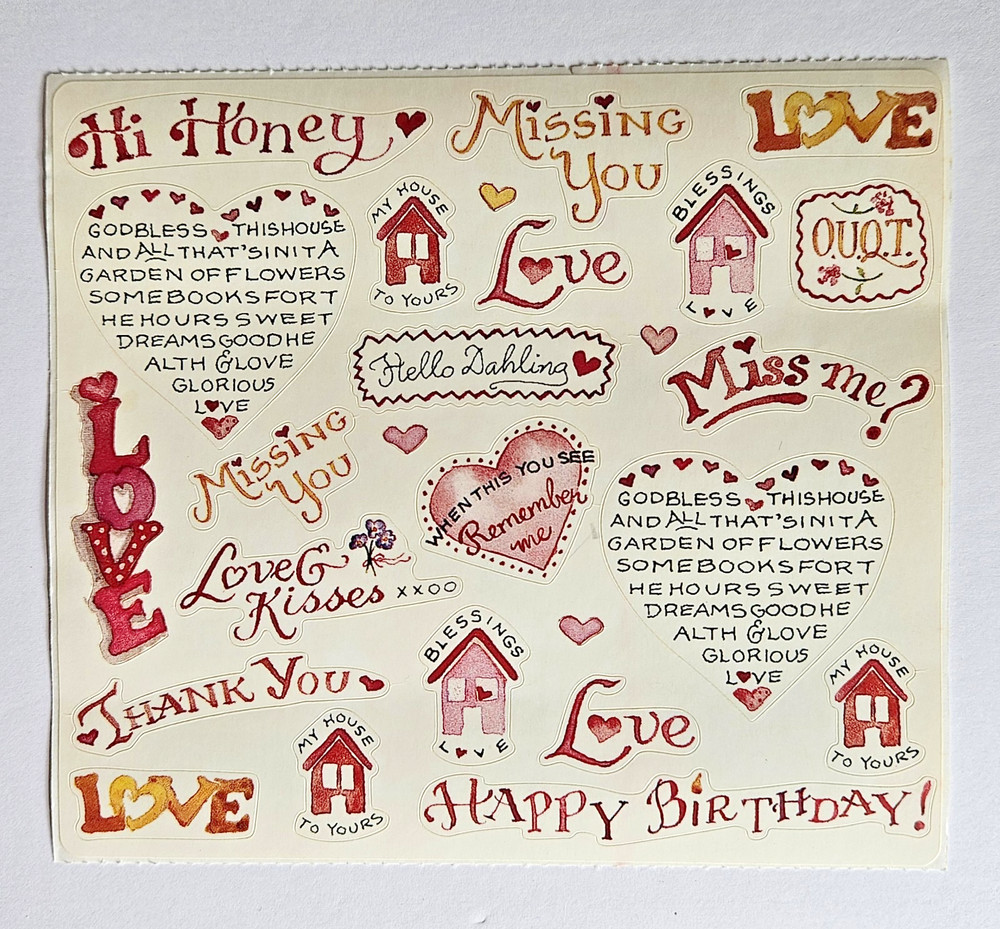 Hi Honey
Missing
You
LOVE
GODBLESS THISHOUSE
ANDALLTHAT'SINITA
GARDEN OFFLOWERS
SOMEBOOKSFORT
HEHOURSSWEET
DREAMSGOODHE
ALTH &LOVE
GLORIOUS
LOVE
MY HOUSE
TO YOURS
Love
BLESSINGS
LOVE
O.U.Q.T.
Hello Dahling
Miss me?
LOVE
Missing
You
WHEN THIS YOU SEE
Remember
me
GODBLESS THISHOUSE
ANDALLTHAT'SINITA
GARDEN OFFLOWERS
SOMEBOOKSFORT
HEHOURSSWEET
DREAMSGOODHE
ALTH &LOVE
GLORIOUS
LOVE
Love&
Kisses xxoo
BLESSINGS
LOVE
THANK You
MY HOUSE
TO YOURS
Love
MY HOUSE
TO YOURS
LOVE
HAPPY BIRTHDAY!